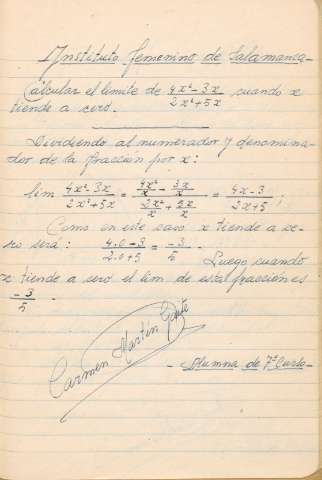 Instituto femenino de Salamanca-
Calcular el limite de (4x²-3x)/(2x²+5x) cuando x
tiende a cero.
Dividiendo al numerador y denomina-
dor de la fracción por x:
lim (4x²-3x)/(2x²+5x) = (4x²/x - 3x/x)/(2x²/x + 5x/x) = (4x-3)/(2x+5);
Como en este caso x tiende a ce-
ro será: (4.0-3)/(2.0+5) = -3/5. Luego cuando
x tiende a cero el lim de esta fracción es
-3/5.
Carmen Martín Gaite
-Alumna de 7º Curso-